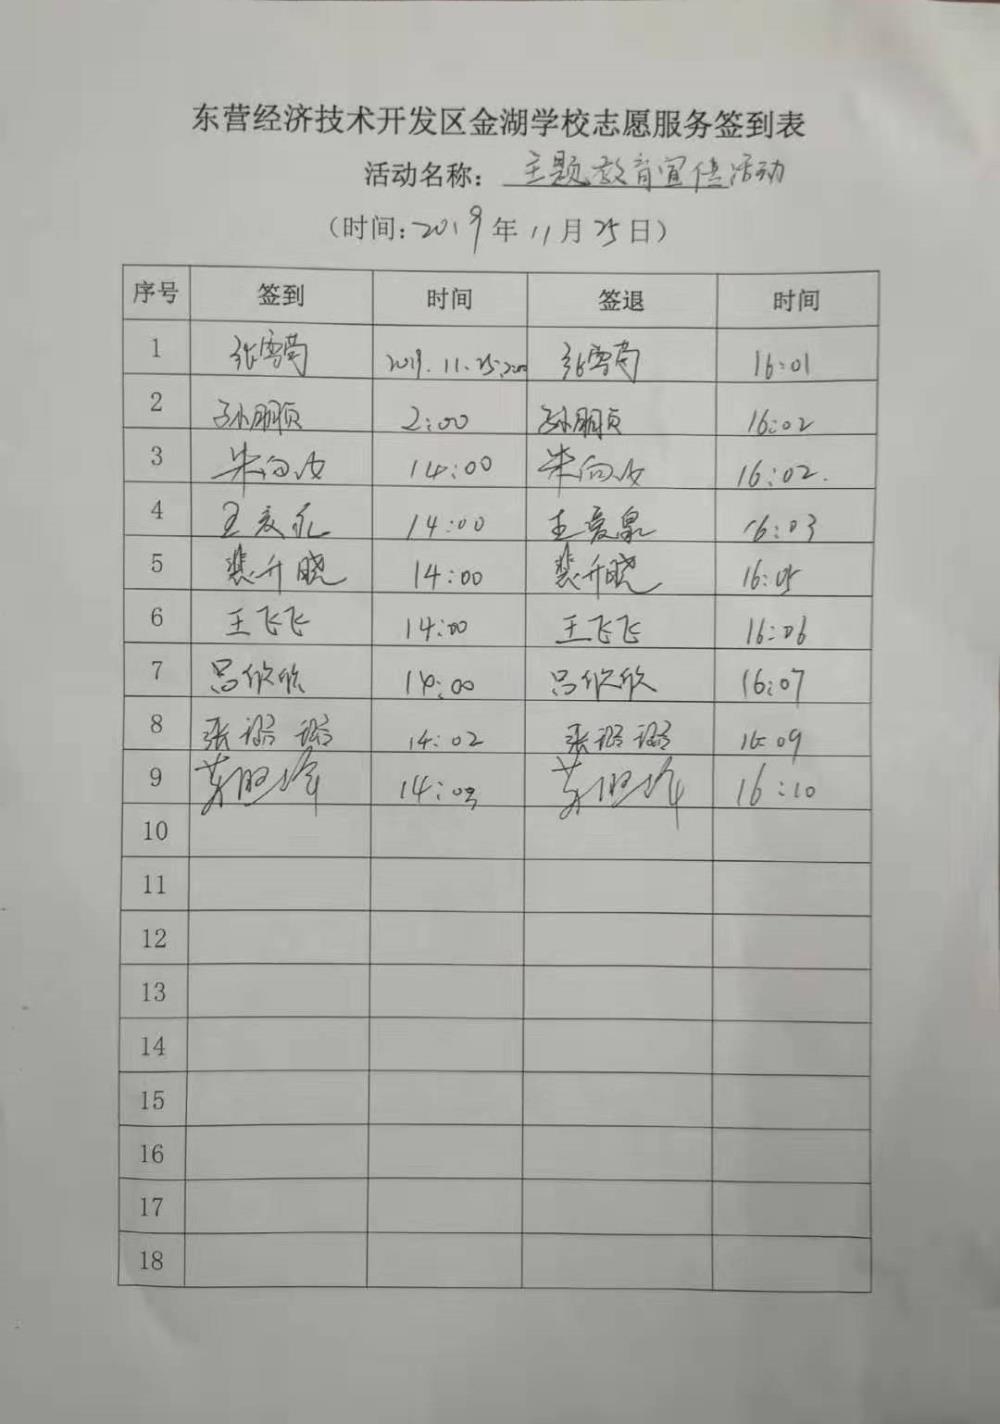 东营经济技术开发区金湖学校志愿服务签到表
活动名称：主题教育宣传活动
（时间：2019年11月25日）
序号 签到 时间 签退 时间
1 张雪菊 2019.11.25, 张雪菊 16:01
2 孙朋页 2:00 孙朋页 16:02
3 朱向 14:00 朱向 16:02.
4 王 14:00 王爱泉 16:03
5 裴升晓 14:00 裴升晓 16:05
6 王飞飞 14:00 王飞飞 16:06
7 吕欣欣 14:00 吕欣欣 16:07
8 张璐璐 14:02 张璐璐 16:09
9 14:03 16:10
10
11
12
13
14
15
16
17
18